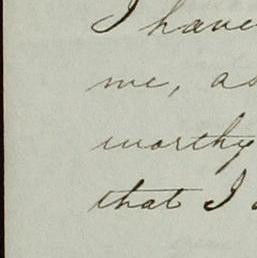 I have
me, as
worthy
that I